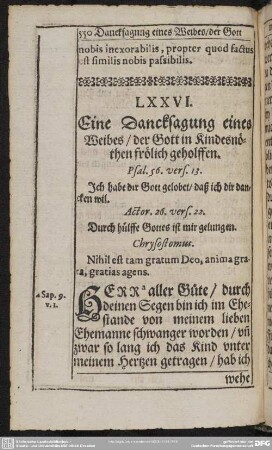 550 Dancksagung eines Weibes/der Gott
nobis inexorabilis, propter quod factus
est similis nobis passibilis.
LXXVI.
Eine Dancksagung eines
Weibes/der Gott in Kindesnö-
then frölich geholffen.
Psal. 56. vers. 13.
Ich habe dir Gott gelobet/ daß ich dir dan-
cken wil.
Actor. 26. vers. 22.
Durch hülffe Gottes ist mir gelungen.
Chrysostomus.
Nihil est tam gratum Deo, anima gra-
ta, gratias agens.
a Sap. 9.
v. 1.
HERR a aller Güte/ durch
deinen Segen bin ich im Ehe-
stande von meinem lieben
Ehemanne schwanger worden/ vñ
zwar so lang ich das Kind vnter
meinem Hertzen getragen/ hab ich
wehe